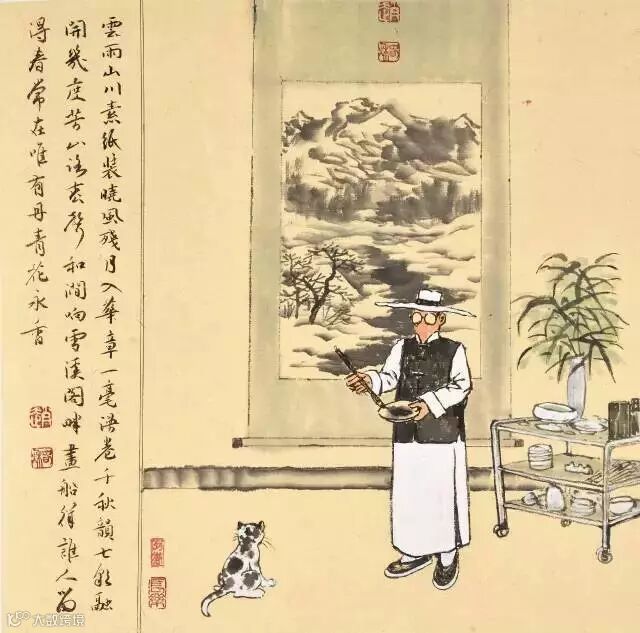 雲雨山川素紙裝曉風殘月入華章一毫漫卷千秋韻七彩融
開幾度芳山謠聲和澗响雪溪閣畔畫船徉誰人留
得春常在唯有丹青花永香
大数跨境